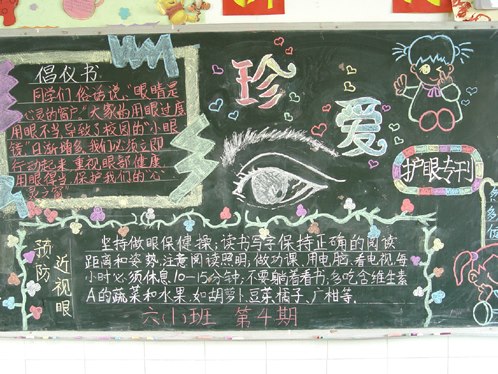 倡仪书
同学们俗话说:"眼睛是
心灵的窗户"大家的用眼过度
用眼不当导致了校园的"小眼
镜"日渐增多,我们必须立即
行动起来 重视眼部健康
用眼得当,保护我们的"心
灵之窗"
珍
爱
护眼专刊
预防
近视眼
坚持做眼保健操;读书写字保持正确的阅读
距离和姿势,注意阅读照明,做功课、用电脑、看电视每
小时必须休息10-15分钟,不要躺着看书;多吃含维生素
A的蔬菜和水果,如胡萝卜、豆芽、橘子、广柑等。
六(1)班 第4期